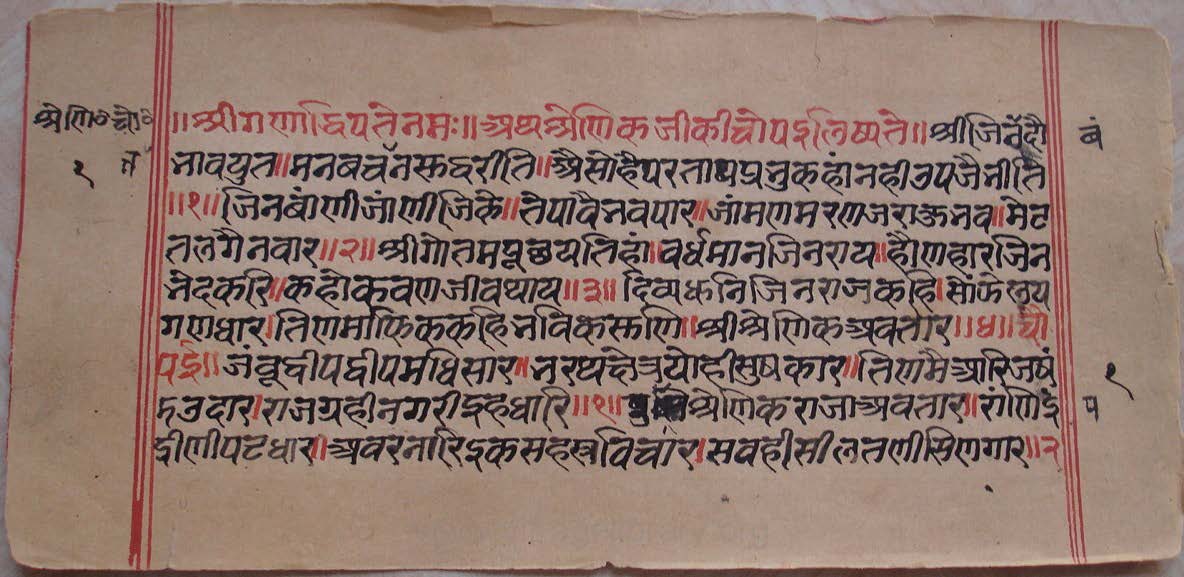 श्रेणि० चो०
१
॥श्रीगणाद्विपतेनमः॥अथश्रेणिकजीकीचोपईलिष्यते॥श्रीजिनबंदौ
नावयुत॥मनबचनस्कदरीति॥अैसोहैपरतापप्रनुकहांनहीउपजैनीति
॥१॥जिनबांणीजांणीजिके॥तेपावैनवपार॥जांमणमरणजराऊनव॥मेट
तलगैनवार॥२॥श्रीगोतमपूछयतिहां॥वर्धमानजिनराय॥हौणहारजिन
नेदकरि॥कहोकवणजीवथाय॥३॥दिव्यधनिजिनराजकहि।सांफेलय
गणधार।तिणमाफिककहिनविकस्कणि॥श्रीश्रेणिकअवतार॥४॥चौ
पई॥जंबूद्वीपद्वीपमधिसार॥नरथषेत्रयोहीसुषकार॥तिणमैआरिजषं
मउदार।राजग्रहीनगरीइहधारि॥१॥श्रेणिकराजाअवतार॥रांणिइ
द्रीणीपटधार।अवरनारिइकसहस्त्रविचार।सवहीसीलतणीसिणगार॥२